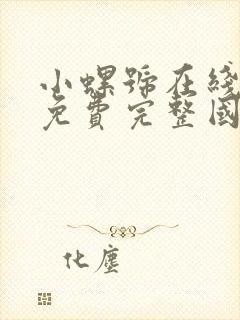 小螺號在綫
免費完整國
化塵